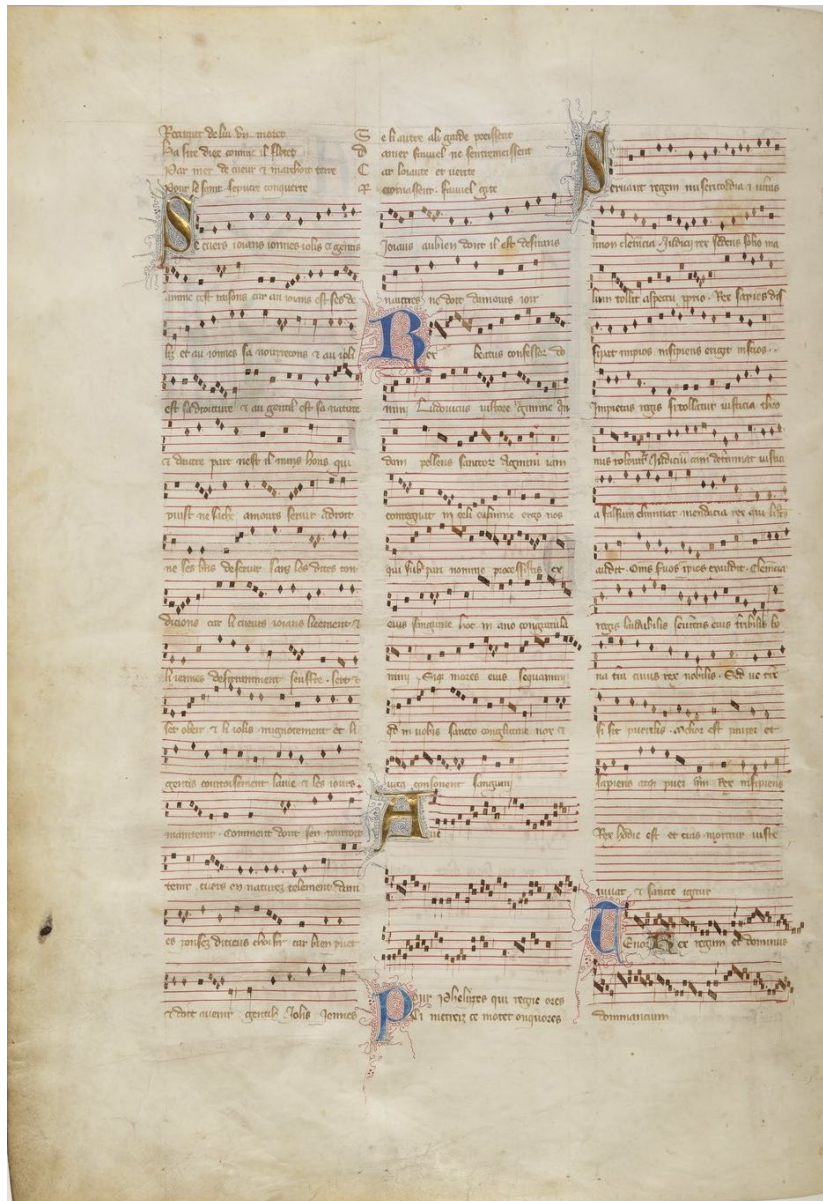 de lui vn motet
comme il
Par mer de cueur & terre
Pour le saint sepucre conquerre
Se cuers ioians ionnes iolis & gentis
aimme cest raisons car au ioians est ses de
liz et au ionnes sa nourrecons & au ioli
est sa droiture & au gentil est sa nature
et dautre part nest il nuns hons qui
puist ne sache amours seruir adroit
ne ses biens deseruir sans les dites con
dicions car li cuers ioians liement &
li iennes desiranment seuffre . sert &
set obeir & li iolis mignotement et li
gentis courtoisement lauie & les iours
maintenir . Comment dont sen pourroit
tenir . cuers en natures telement dam
es choisir car bien puet
& doit auenir gentilz Jolis Jennes
Se li autre ali garde preissent
damer fauuel ne sentremeissent
Car loiaute et verite
fauuel gite
Joians aubien dont il est desirans
nautres ne doit damours ioir
Rex beatus confessor do
mini Ludouicus
dam pellens sanctor agmini iam
congregat in celi culmine ergo nos
qui sub pari nomine processistis ex
eius sanguine hoc in ano congratula
mini . Sicque mores eius sequamini
qd in uobis sancto conglutine uox &
uita consonent sanguini
Aue
Pour Phelippes qui regne ores
Ci metreiz ce motet onquores
Seruant regem misericordia & ueritas
necnon clemencia . Judicij rex sedens solio ma
lum tollit aspectu prio . Rex sapiens dis
sipat impios insipiens erigit inscios .
Impietas regis si tollatur iusticia thro
nus roboratur Judicium condempnat iusticia
falsum eliminat mendacia rex qui
audit . Omnes suos ipios exaudit . Clemencia
regis laudabilis seueritas eius tribilis bo
na tra cuius rex nobilis . Sed ue tre
si sit puerilis . Melior est pauper et
sapiens atque puer qm Rex insipiens
Rex hodie est et cras moritur iuste
uiuat & sancte igitur
Tenor Rex regum et dominus
dominancium